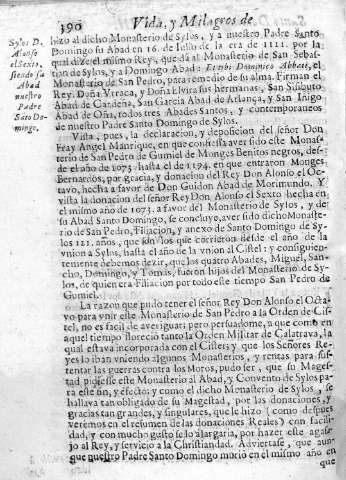 390 Vida, y Milagros de
Sylos D. Alonso el Sexto, siendo sa Abad nuestro Padre Sāto Domingo.
hizo al dicho Monasterio de Sylos, y a nuestro Padre Santo
Domingo su Abad en 16. de Iulio de la era de 1111. por la
qual dize el mismo Rey, que dà al Monasterio de San Sebas-
tian de Sylos, y a Domingo Abad: Dominico Abbati, el
Monasterio de San Pedro, para remedio de su alma. Firman el
Rey, Doña Vrraca, y Doña Elvira sus hermanas, San Sisebuto
Abad de Cardeña, San Garcia Abad de Arlança, y San Iñigo
Abad de Oña, todos tres Abades Santos, y contemporaneos
de nuestro Padre Santo Domingo de Sylos.
Vista, pues, la declaracion, y deposicion del señor Don
Fray Angel Manrique, en que confiessa aver sido este Monas-
terio de San Pedro de Gumiel de Monges Benitos negros, des-
de el año de 1073. hasta el de 1194. en que entraron Monges
Bernardos, por gracia, y donacion del Rey Don Alonso el Oc-
tavo, hecha a favor de Don Guidon Abad de Morimundo. Y
vista la donacion del señor Rey Don Alonso el Sexto hecha en
el mismo año de 1073. a favor del Monasterio de Sylos, y de
su Abad Santo Domingo, se concluyo, aver sido dicho Monaste-
rio de San Pedro, Filiacion, y anexo de Santo Domingo de Sy-
los 121. años, que son los que corrieron desde el año de la
vnion a Sylos, hasta el año de la vnion al Cistel: y consiguien-
temente debemos dezir, que los quatro Abades, Miguel, San-
cho, Domingo, y Tomás, fueron hijos del Monasterio de Sy-
los, de quien era Filiacion por todo este tiempo San Pedro de
Gumiel.
La razon que pudo tener el señor Rey Don Alonso el Octa-
vo para vnir este Monasterio de San Pedro a la Orden de Cis-
tel, no es facil de averiguar; pero persuadome, a que como en
aquel tiempo florecio tanto la Orden Militar de Calatrava, la
qual estava incorporada con el Cistèr; y que los Señores Re-
yes lo iban vniendo algunos Monasterios, y rentas para sus-
tentar las guerras contra los Moros, pudo ser, que su Mages-
tad pidiesse este Monasterio al Abad, y Convento de Sylos pa-
ra este fin, y efecto: y como el dicho Monasterio de Sylos, se
hallava tan obligado de su Magestad, por las donaciones, y
gracias tan grandes, y singulares, que le hizo (como despues
veremos en el resumen de las donaciones Reales) con facili-
dad, y con mucho gusto se lo alargaria, por hazer este agasa-
jo al Rey, y servicio a la Christiandad. Adviertase, que aun-
que nuestro Padre Santo Domingo muriò en el mismo año en
que